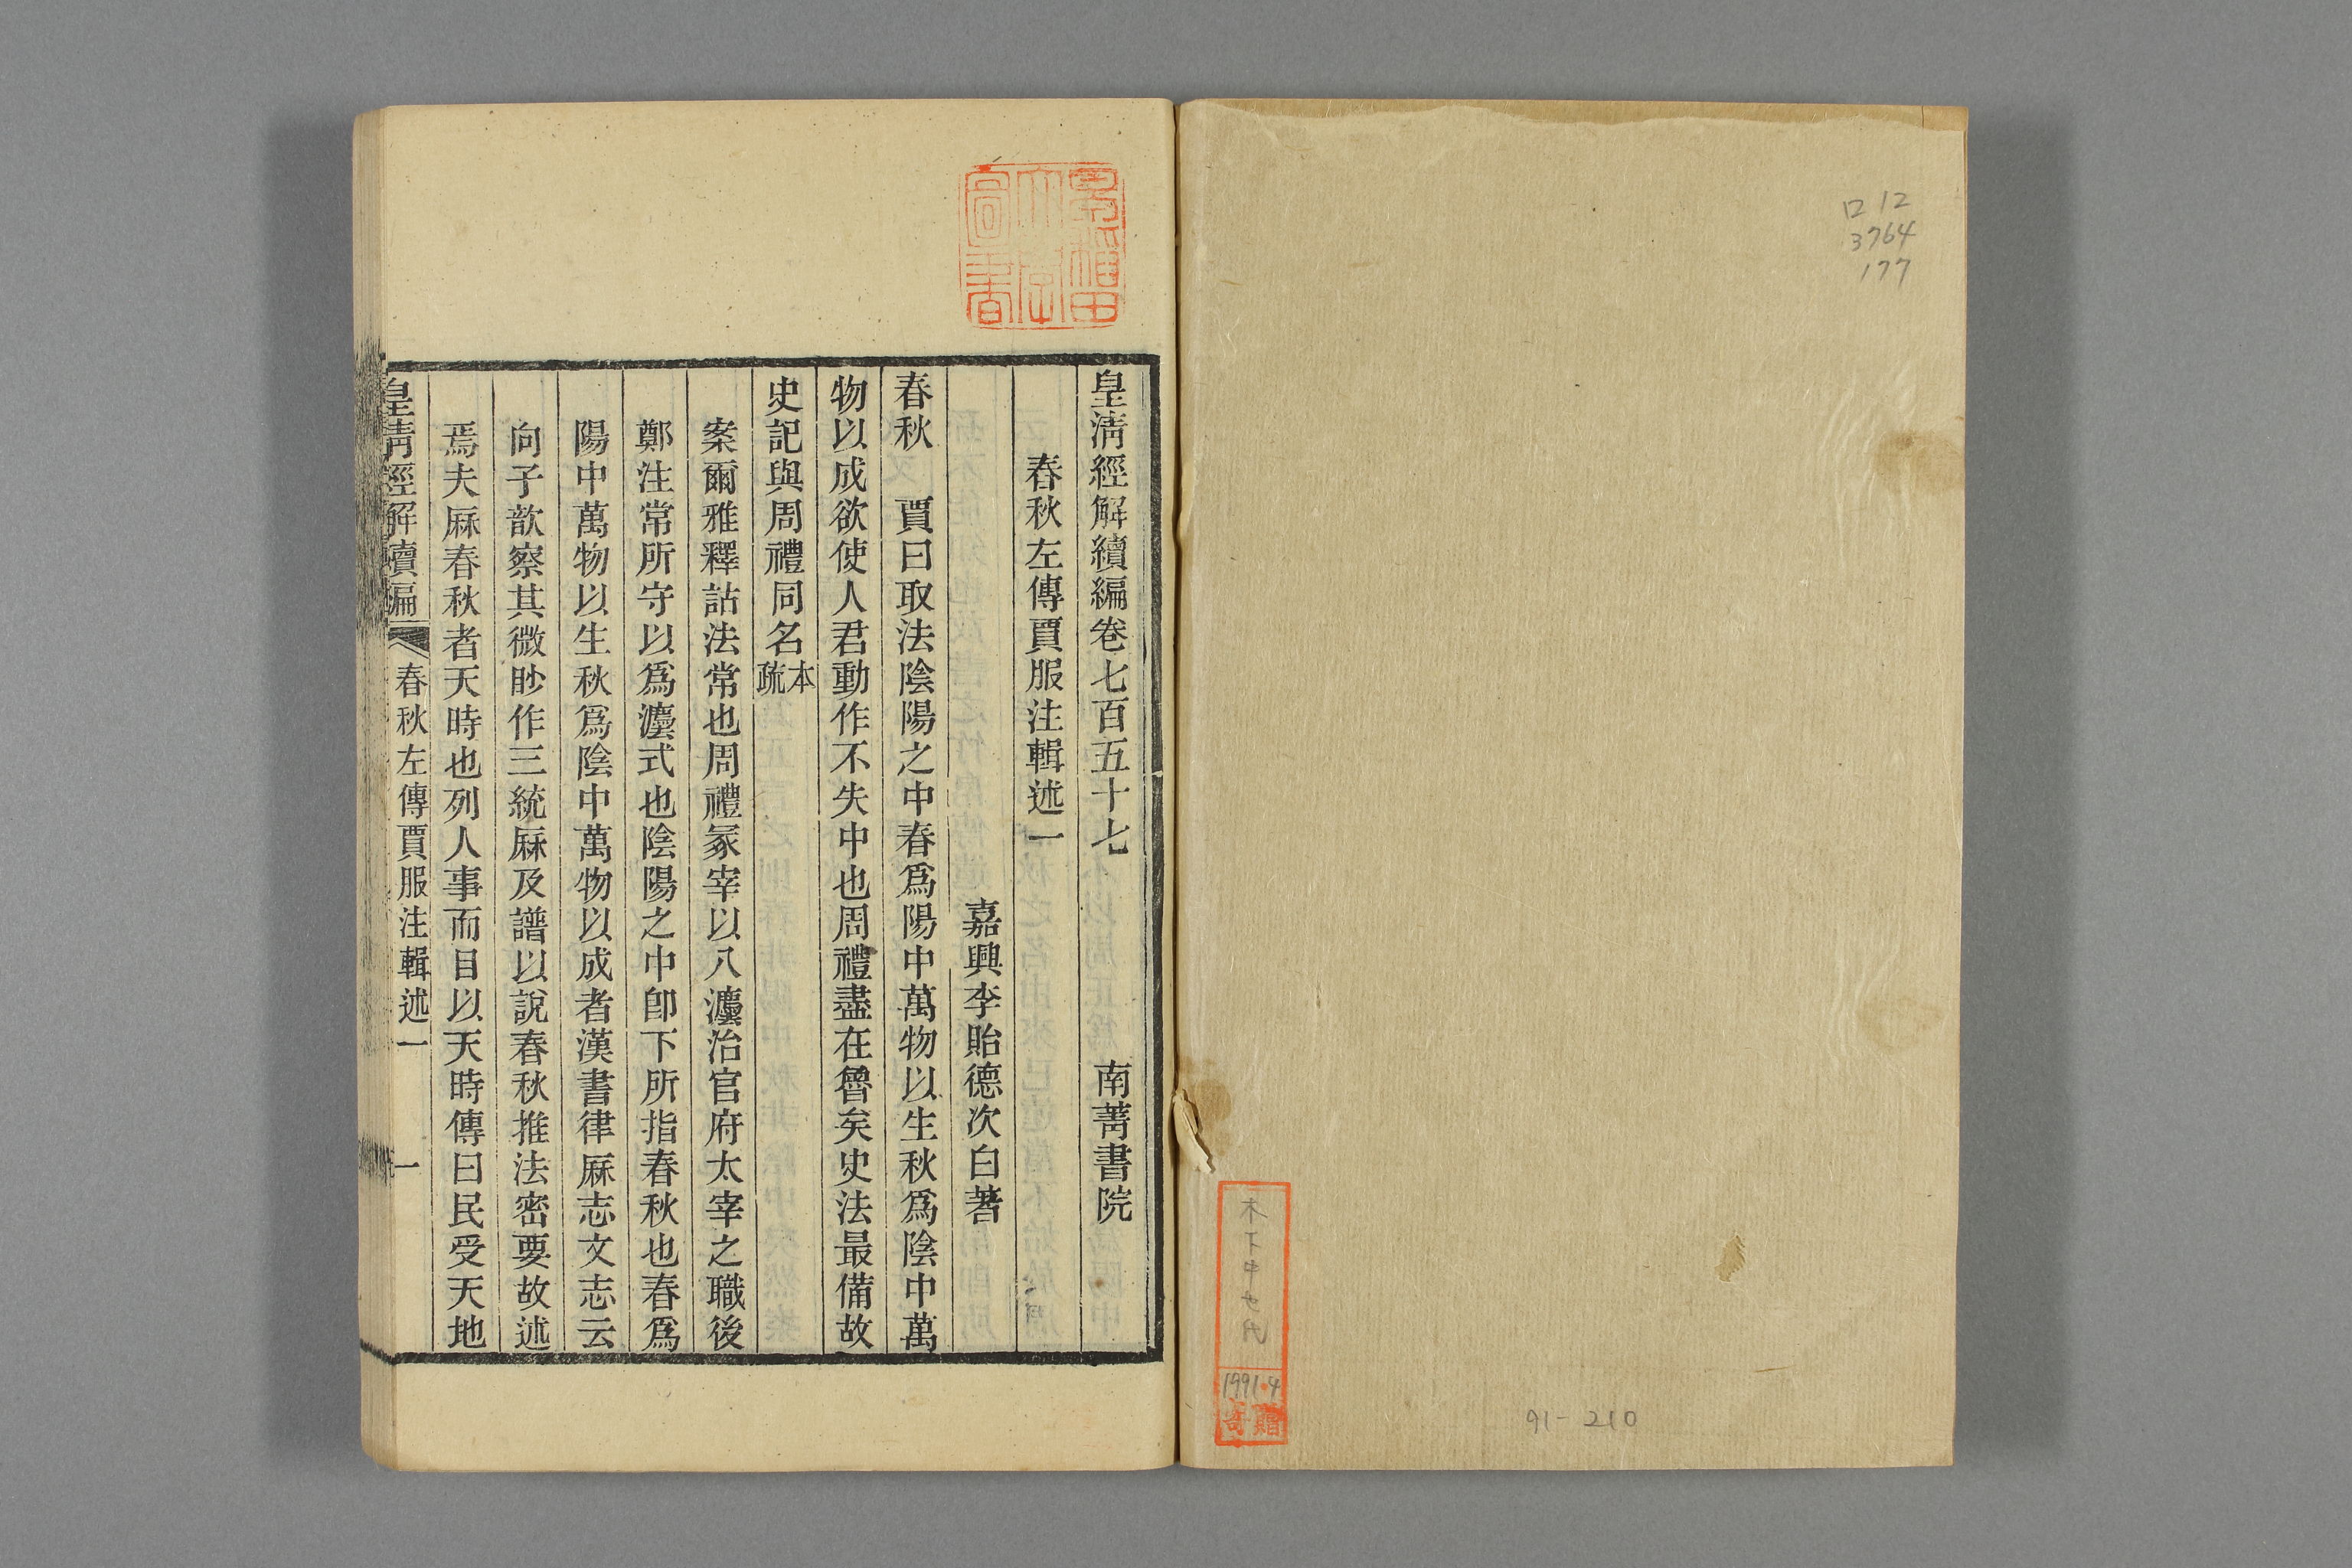 ロ12
3764
177
1991.4
寄贈
91-210
早稲田大學圖書
皇清經解續編卷七百五十七 南菁書院
春秋左傳賈服注輯述一
嘉興李貽德次白著
春秋 賈曰取法陰陽之中春爲陽中萬物以生秋爲陰中萬
物以成欲使人君動作不失中也周禮盡在魯矣史法最備故
史記與周禮同名本疏
案爾雅釋詁法常也周禮冢宰以八灋治官府太宰之職後
鄭注常所守以爲灋式也陰陽之中卽下所指春秋也春爲
陽中萬物以生秋爲陰中萬物以成者漢書律厤志文志云
向子歆察其微眇作三統厤及譜以說春秋推法密要故述
焉夫厤春秋者天時也列人事而目以天時傳曰民受天地
皇清經解續編 春秋左傳賈服注輯述一 一